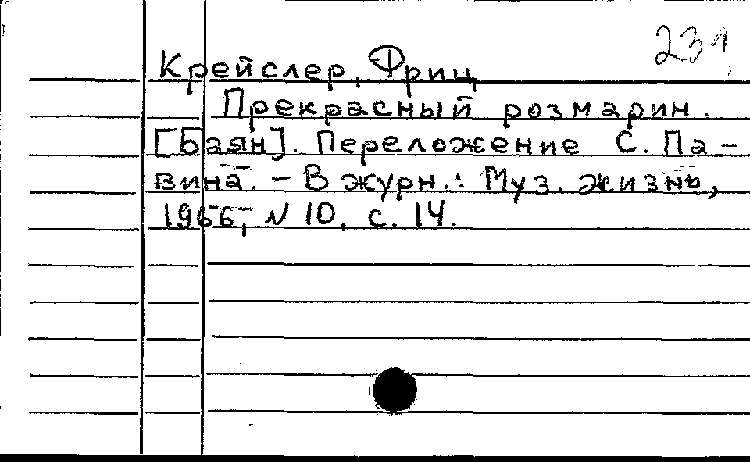 231
Крейслер, Фриц
Прекрасный розмарин.
[Баян]. Переложение С. Па-
вина. – В журн.: Муз. жизнь,
1966, N 10, с. 14.